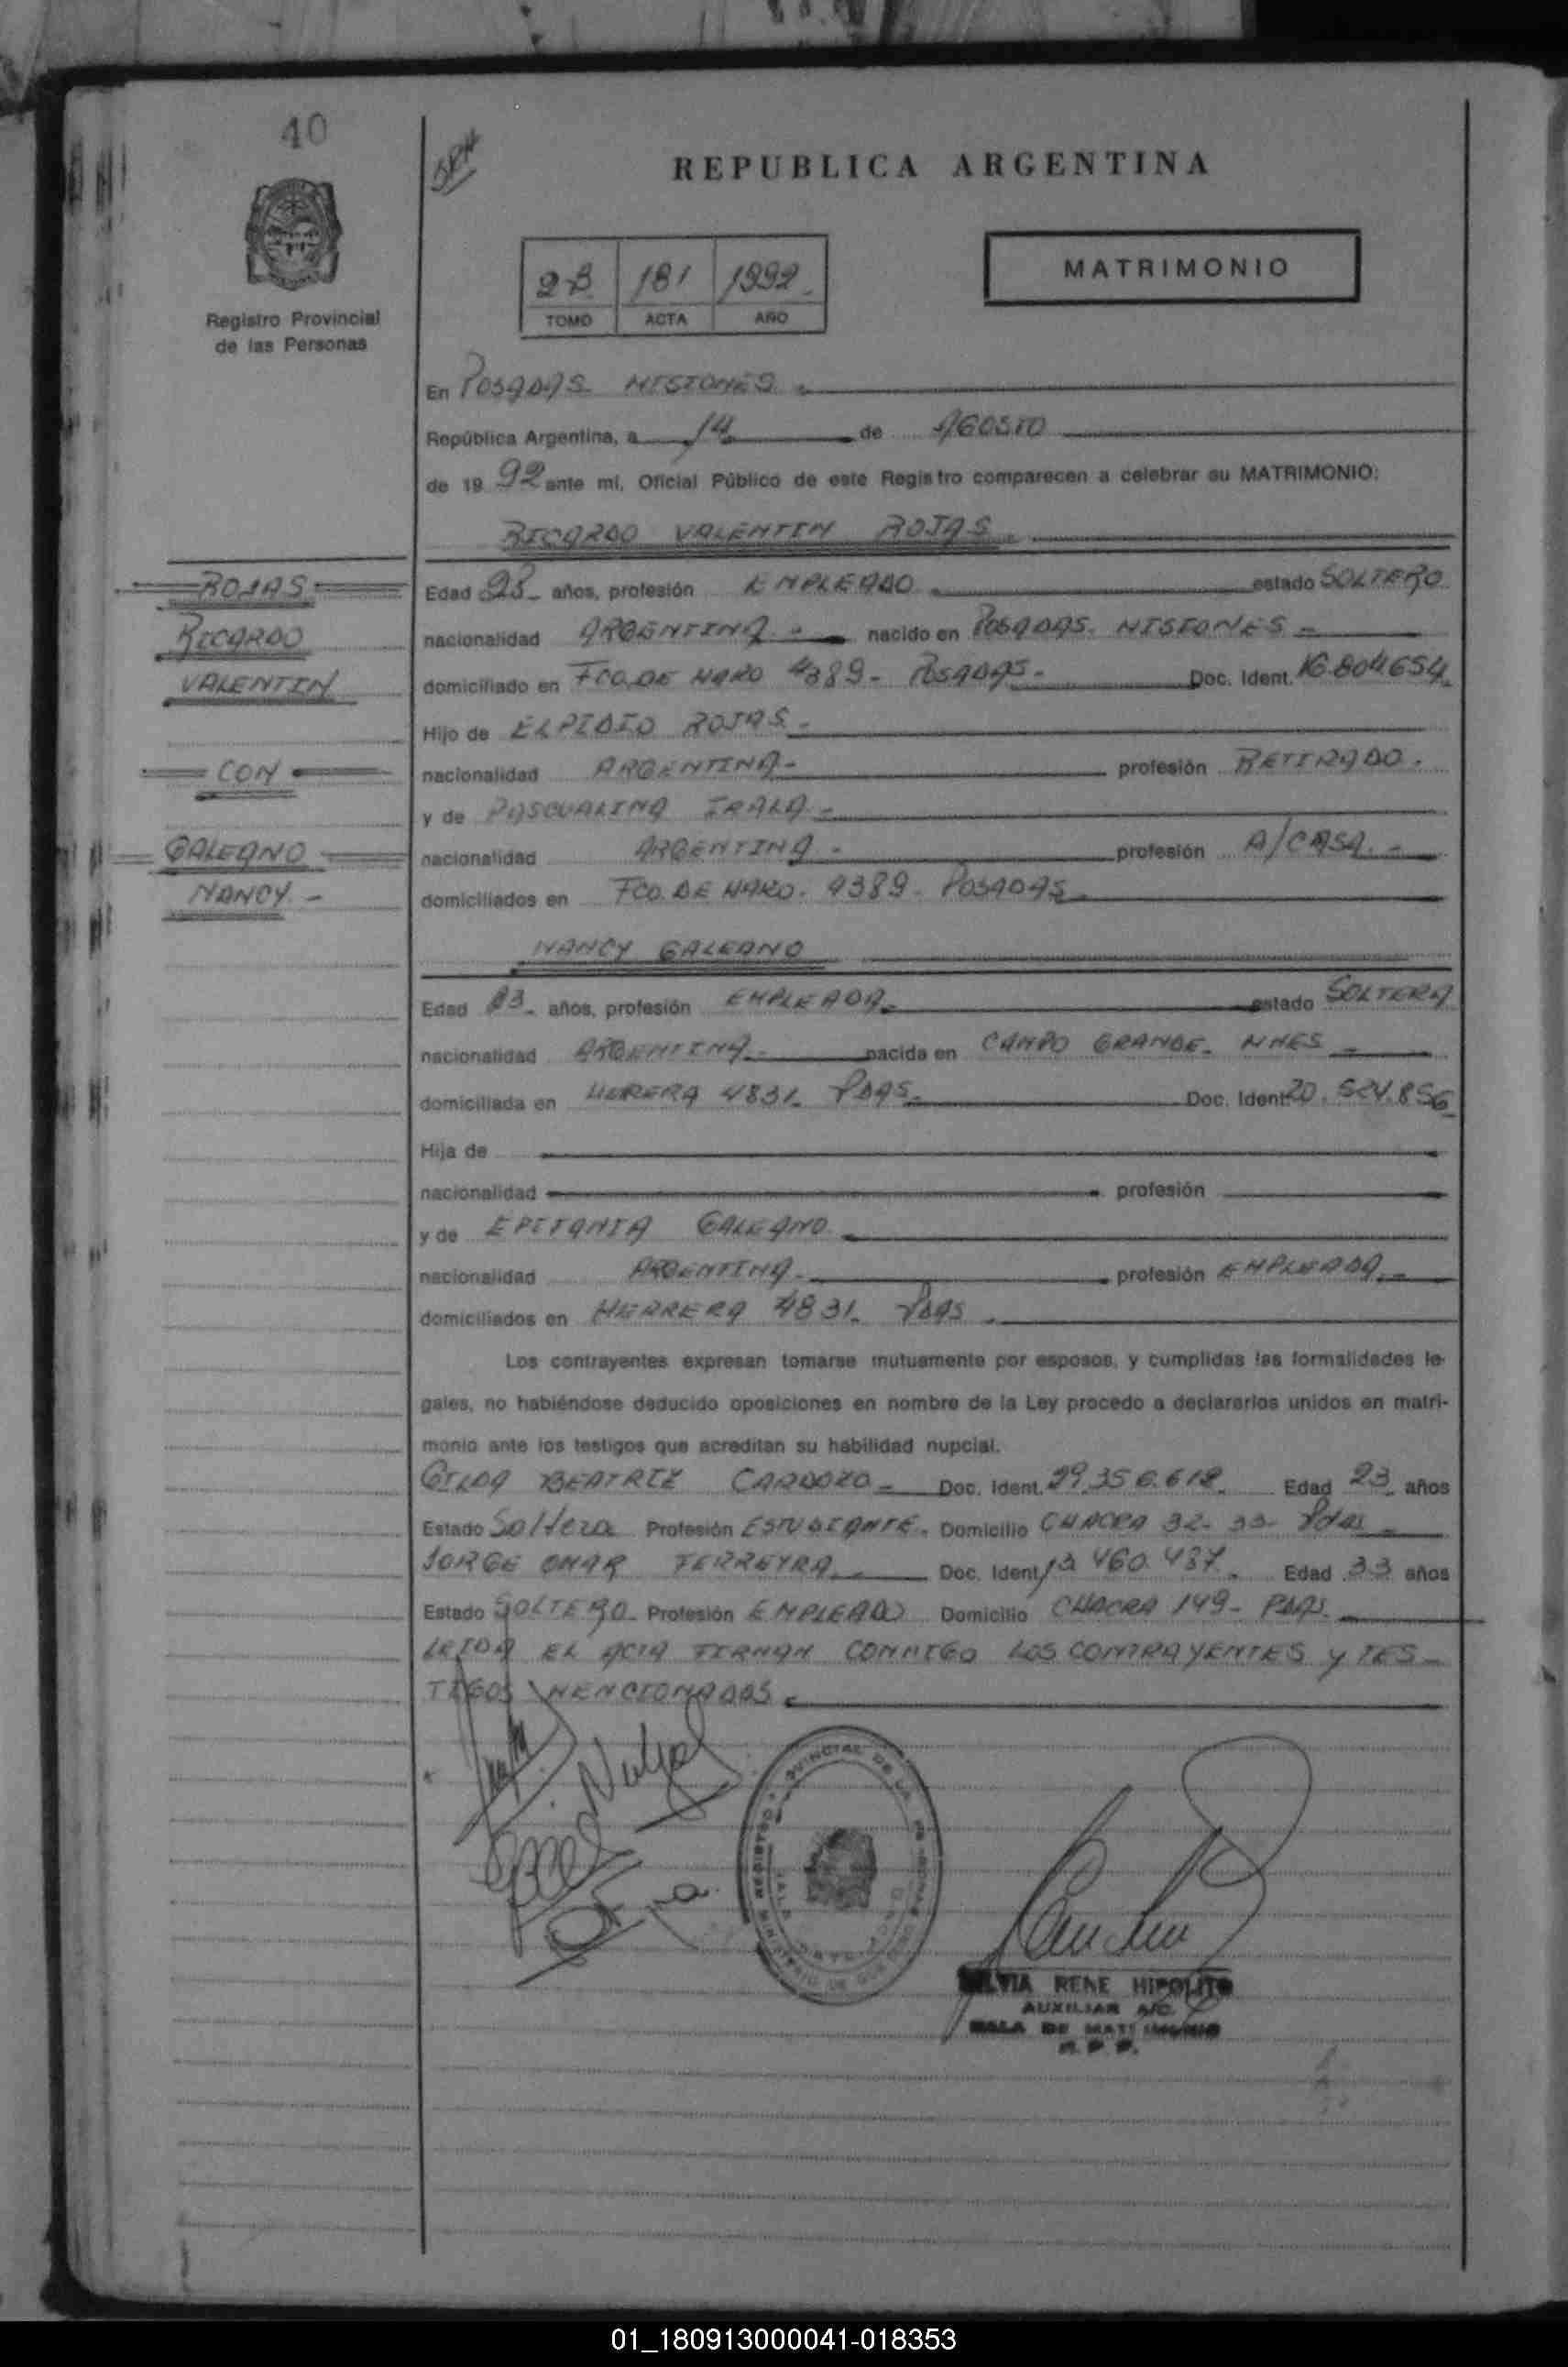 40
REPUBLICA ARGENTINA
2-B 181 1992
TOMO ACTA AÑO
MATRIMONIO
Registro Provincial
de las Personas
En POSADAS MISIONES
República Argentina, a 14 de AGOSTO
de 19 92 ante mí, Oficial Público de este Registro comparecen a celebrar su MATRIMONIO:
RICARDO VALENTIN ROJAS
ROJAS
RICARDO
VALENTIN
CON
GALEANO
NANCY.-
Edad años, profesión EMPLEADO estado SOLTERO
nacionalidad ARGENTINA.- nacido en POSADAS. MISIONES -
domiciliado en FCO. DE HARO 4389- POSADAS- Doc. Ident. 16.804.654
Hijo de ELPIDIO ROJAS -
nacionalidad ARGENTINA- profesión RETIRADO.
y de PASCUALINA IRALA -
nacionalidad ARGENTINA - profesión A/CASA.-
domiciliados en FCO. DE HARO. 4389- POSADAS
NANCY GALEANO
Edad años, profesión EMPLEADA estado SOLTERA
nacionalidad ARGENTINA- nacida en CAMPO GRANDE. MNES -
domiciliada en HERRERA 4831. PDAS. Doc. Ident. 20.524.856
Hija de
nacionalidad profesión
y de EPIFANIA GALEANO
nacionalidad ARGENTINA- profesión EMPLEADA.-
domiciliados en HERRERA 4831. PDAS.
Los contrayentes expresan tomarse mutuamente por esposos, y cumplidas las formalidades le-
gales, no habiéndose deducido oposiciones en nombre de la Ley procedo a declararlos unidos en matri-
monio ante los testigos que acreditan su habilidad nupcial.
GILDA BEATRIZ CARDOZO- Doc. Ident. Edad 23 años
Estado Soltera Profesión ESTUDIANTE. Domicilio CHACRA 32-33 Pdas
JORGE OMAR FERREYRA Doc. Ident. Edad 33 años
Estado SOLTERO- Profesión EMPLEADO Domicilio CHACRA 149- PDAS.
LEIDA EL ACTA FIRMAN CONMIGO LOS CONTRAYENTES y TES-
TIGOS MENCIONADOS.
SILVIA RENE HIPOLITO
AUXILIAR A/C.
SALA DE MATRIMONIO
R. P. P.
01_180913000041-018353